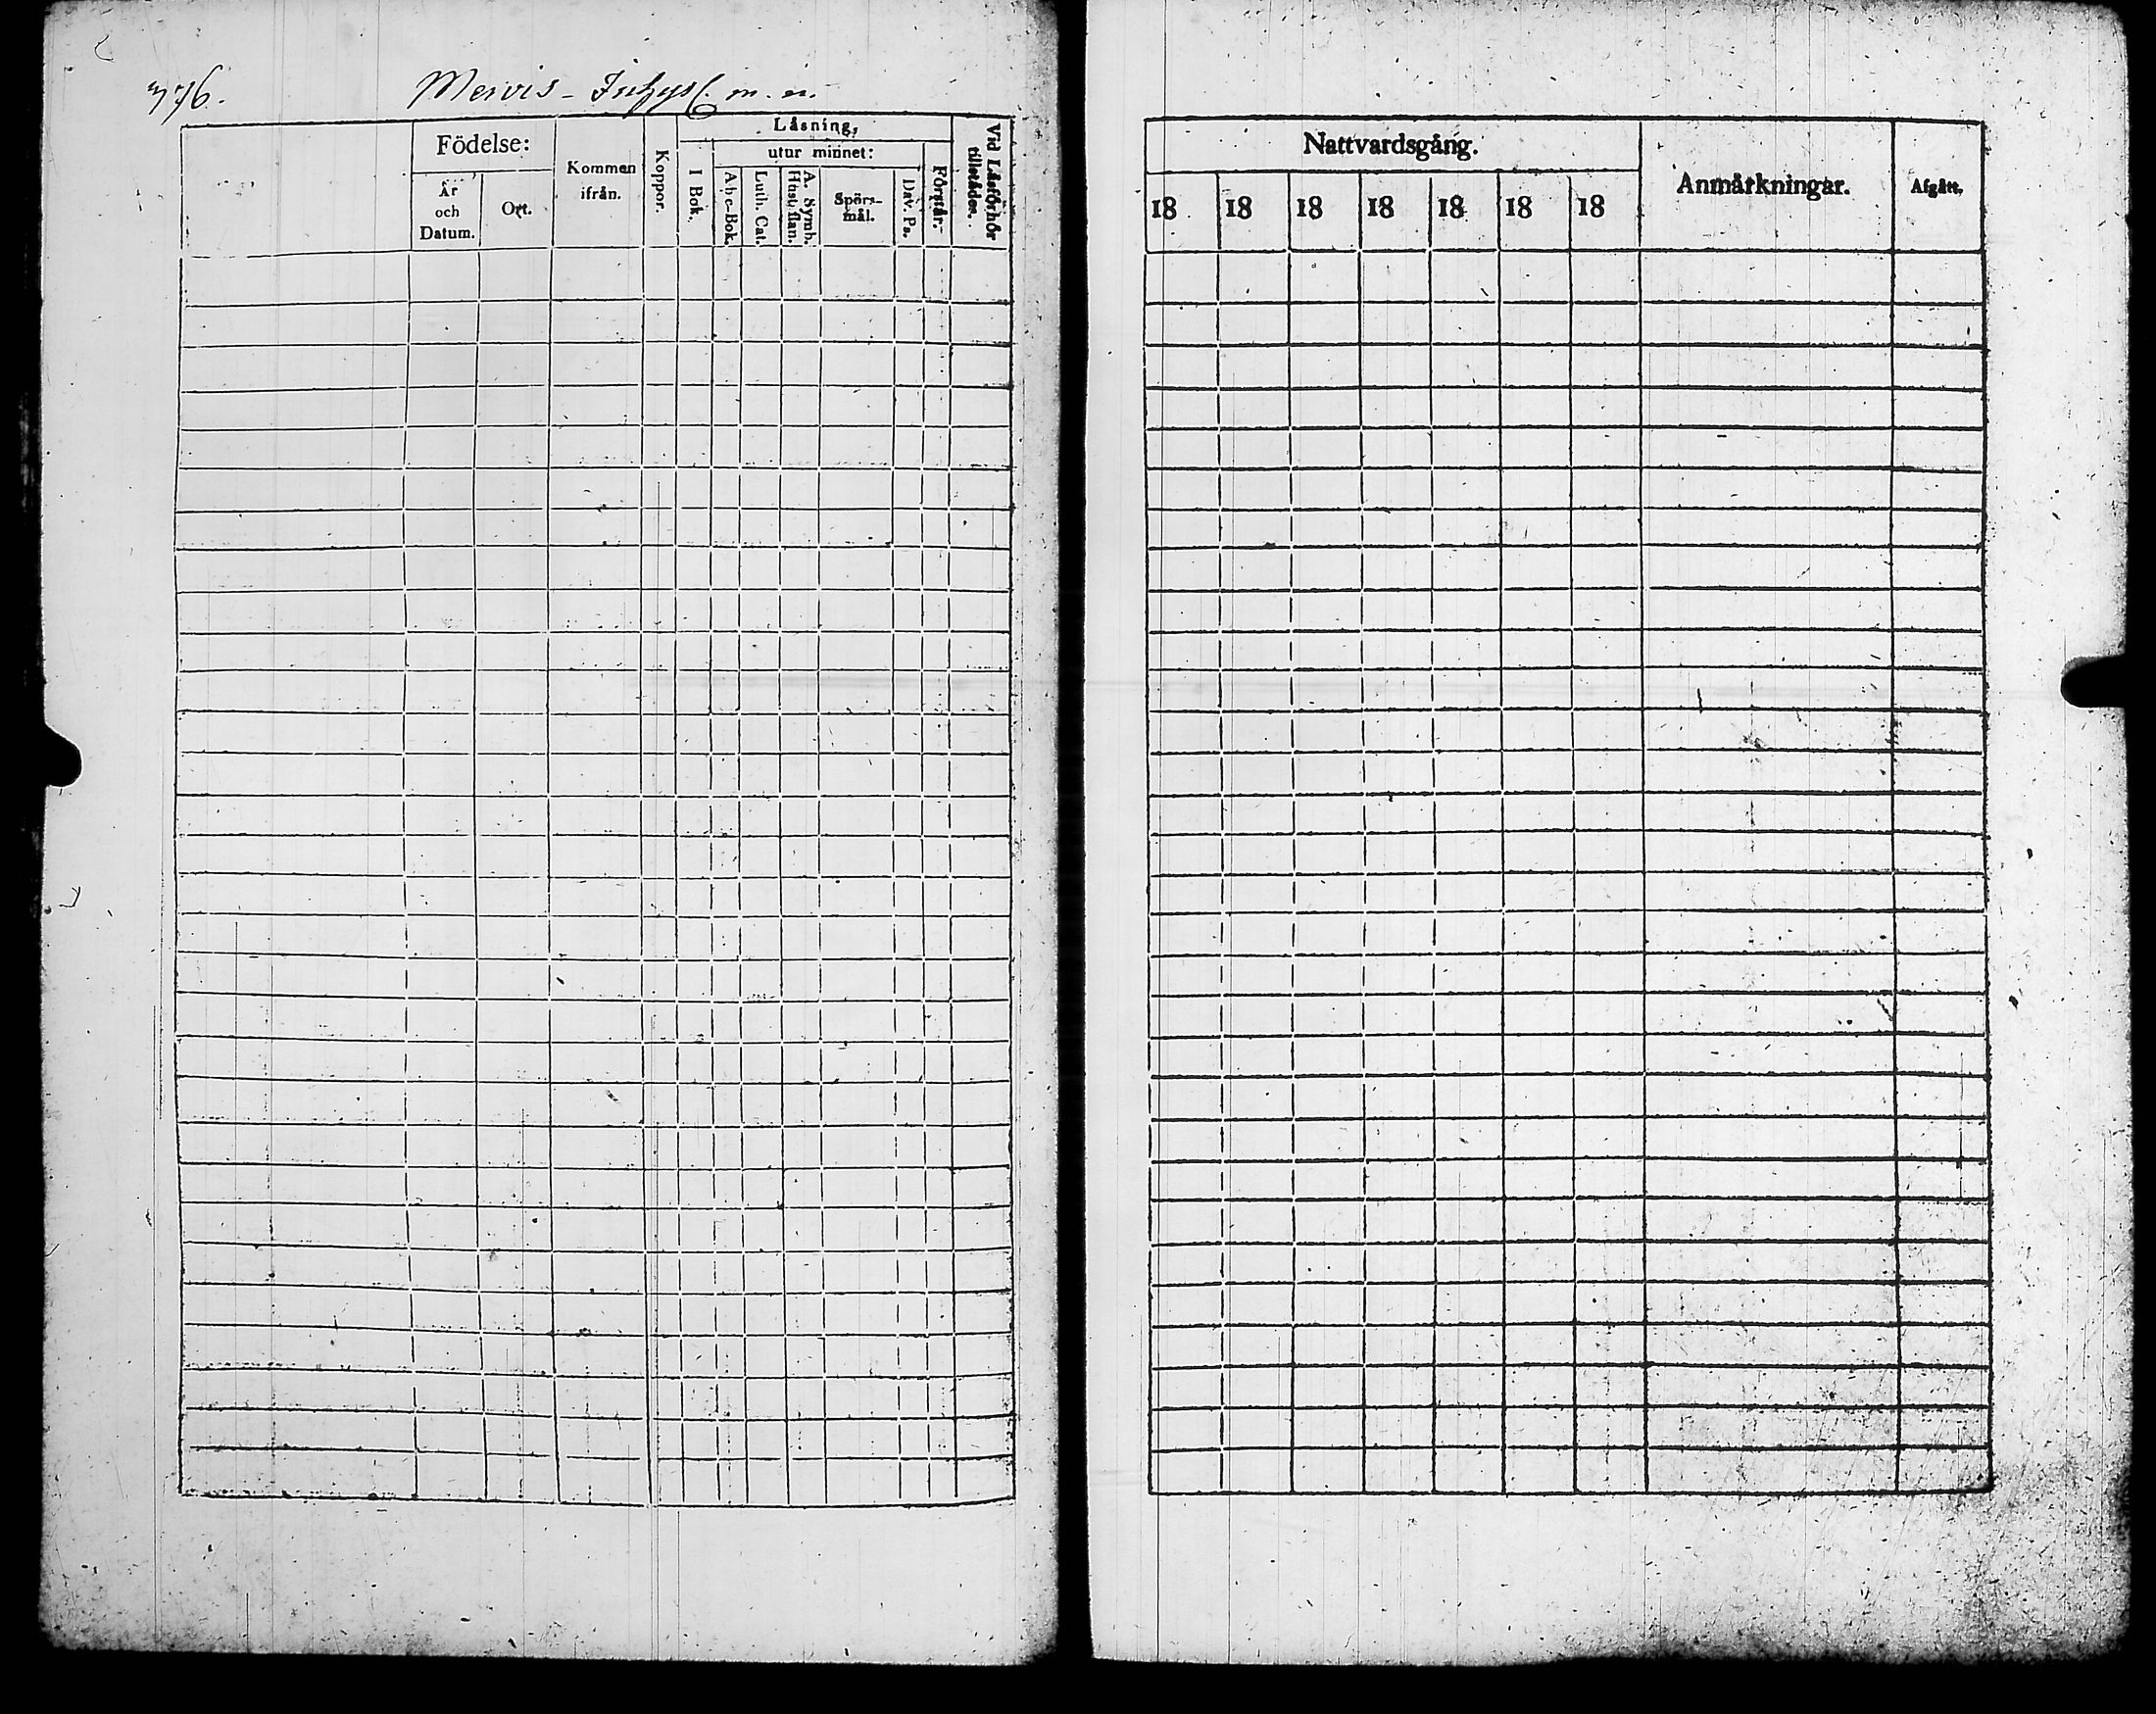 376.
Mervis - m. m.
Födelse:
År och Datum.
Ort.
Kommen ifrån.
Koppor.
Läsning,
I Bok.
utur minnet:
Abc-Bok.
Luth. Cat.
A. Symb. Hust. flan.
Spörs-mål.
Dav. Ps.
Förstår:
Vid Läsförhör tillstädes.
Nattvardsgång.
18 18 18 18 18 18 18
Anmärkningar.
Afgått.